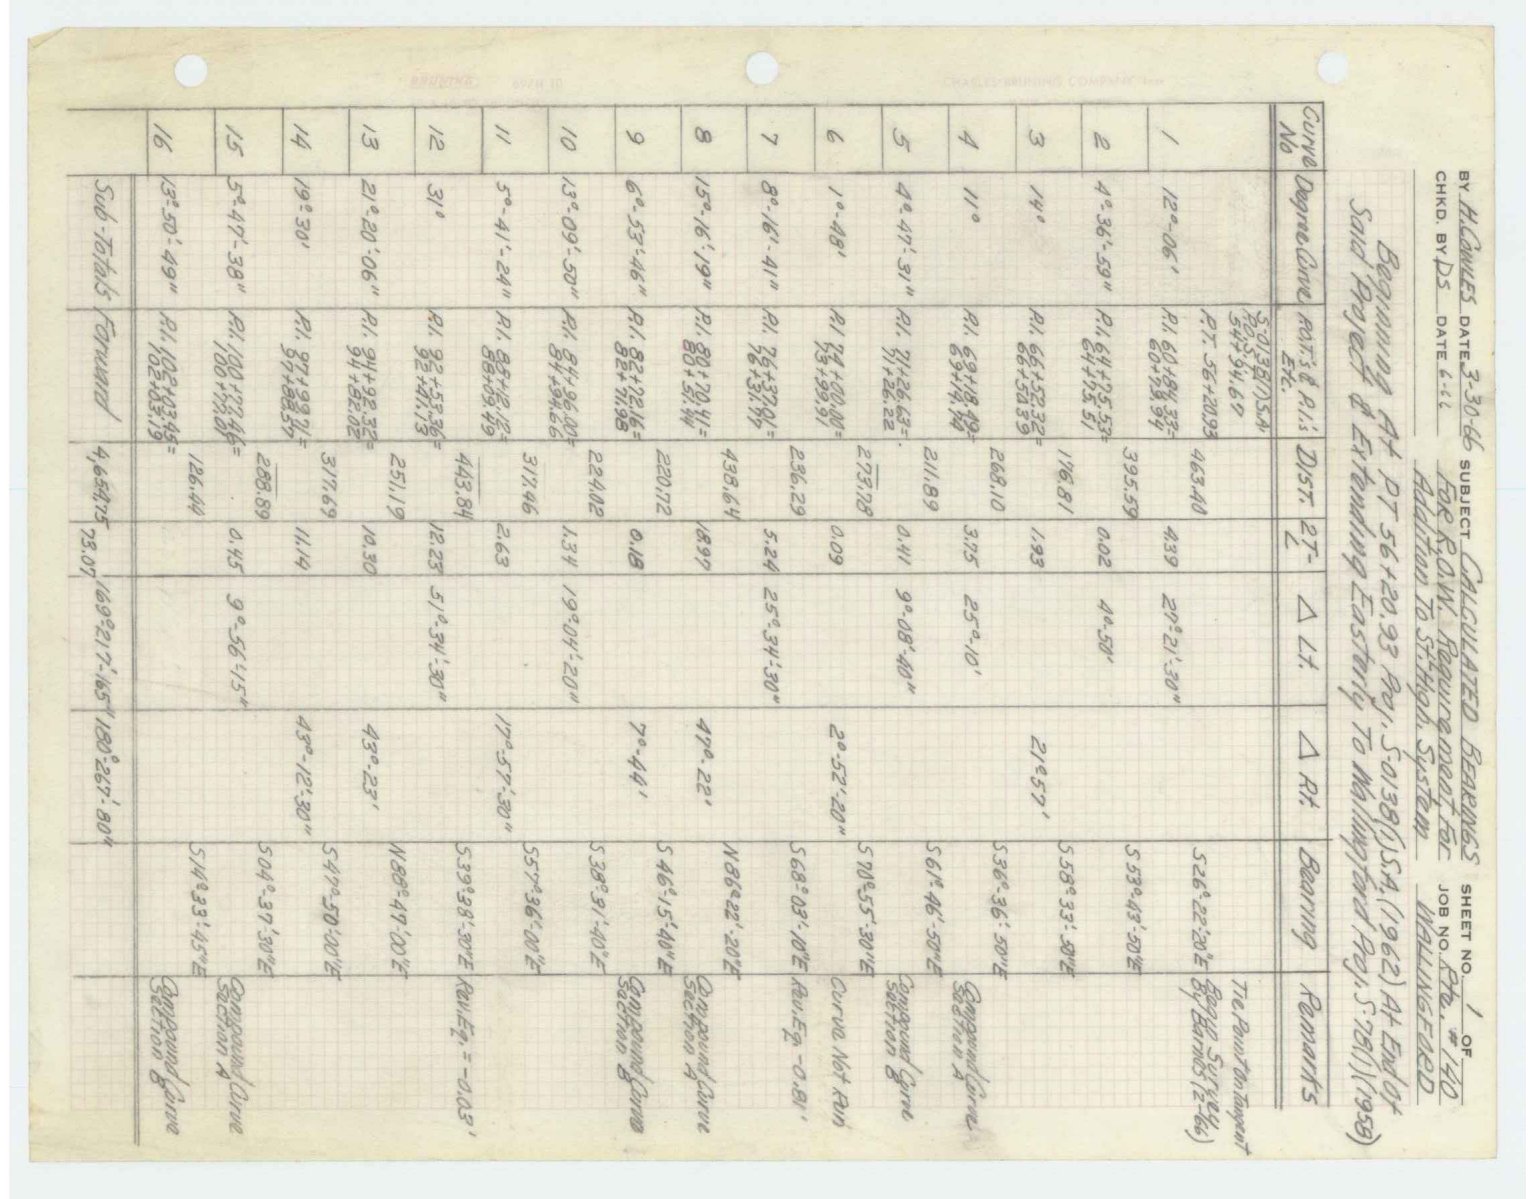 BY H.COWLES DATE 3-30-66 SUBJECT CALCULATED BEARINGS SHEET NO. 1 OF
CHKD. BY DS DATE 6-66 FOR R.O.W. Requirement For JOB NO. Rte. #140
Addition To St. High. System WALLINGFORD
Beginning At PT 56+20.93 Proj. S-0138()SA, (1962) At End of
Said Project & Extending Easterly To Wallingford Proj. S-78(1)(1958)
Curve No Degree Curve P.O.T.'s & P.I.'s Etc. DIST. 2T-L △ Lt. △ Rt. Bearing Remarks
S-0138()SA
54+94.67 Tie Point On Tangent
P.T. 56+20.93 Survey
463.40 S26°-22'-20"E By Barnes (2-66)
1 12°-06' P.I. 60+84.33= 4.39 27°-21'-30"
60+79.94
395.59 S53°-43'-50"E
2 4°-36'-59" P.I. 64+75.53= 0.02 4°-50'
64+75.51
176.81 S58°33'-50"E
3 14° P.I. 66+52.32= 1.93 21°57'
66+50.39
268.10 S36°-36'-50"E
4 11° P.I. 69+18.49= 3.75 25°-10' Compound Curve
69+14.74 Section A
211.89 S61°-46'-50"E
5 4°-47'-31" P.I. 71+26.63= 0.41 9°-08'-40" Compound Curve
71+26.22 Section B
273.78 S70°-55'-30"E
6 1°-48' P.I. 74+00.00= 0.09 2°-52'-20" Curve Not Run
73+99.91
236.29 S68°-03'-10"E Rev. Eq. -0.81'
7 8°-16'-41" P.I. 76+37.01= 5.24 25°-34'-30"
76+31.77
438.64 N86°-22'-20"E
8 15°-16'-19" P.I. 80+70.41= 18.97 47°-22' Compound Curve
80+51.44 Section A
220.72 S46°-15'-40"E
9 6°-53'-46" P.I. 82+72.16= 0.18 7°-44' Compound Curve
82+71.98 Section B
224.02 S38°-31'-40"E
10 13°-09'-50" P.I. 84+96.00= 1.34 19°-04'-20"
84+94.66
317.46 S57°-36'-00"E
11 5°-41'-24" P.I. 88+12.12= 2.63 17°-57'-30"
88+09.49
443.84 S39°-38'-30"E Rev. Eq. = -0.03'
12 31° P.I. 92+53.36= 12.23 51°-34'-30"
92+41.13
251.19 N88°-47'-00"E
13 21°-20'-06" P.I. 94+92.32= 10.30 43°-23'
94+82.02
317.69 S47°-50'-00"E
14 19°-30' P.I. 97+99.71= 11.14 43°-12'-30"
97+88.57
288.89 S04°-37'-30"E
15 5°-47'-38" P.I. 100+77.46= 0.45 9°-56'-15" Compound Curve
100+77.01 Section A
126.44 S14°-33'-45"E
16 13°-50'-49" P.I. 102+03.45= Compound Curve
102+03.19 Section B
Sub-Totals Forward 4,654.75 73.07 169°-217'-165" 180°-267'-80"